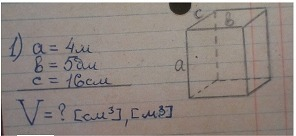 c b
1) a = 4м
b = 5дм
c = 16см
a
V = ? [см³], [м³]